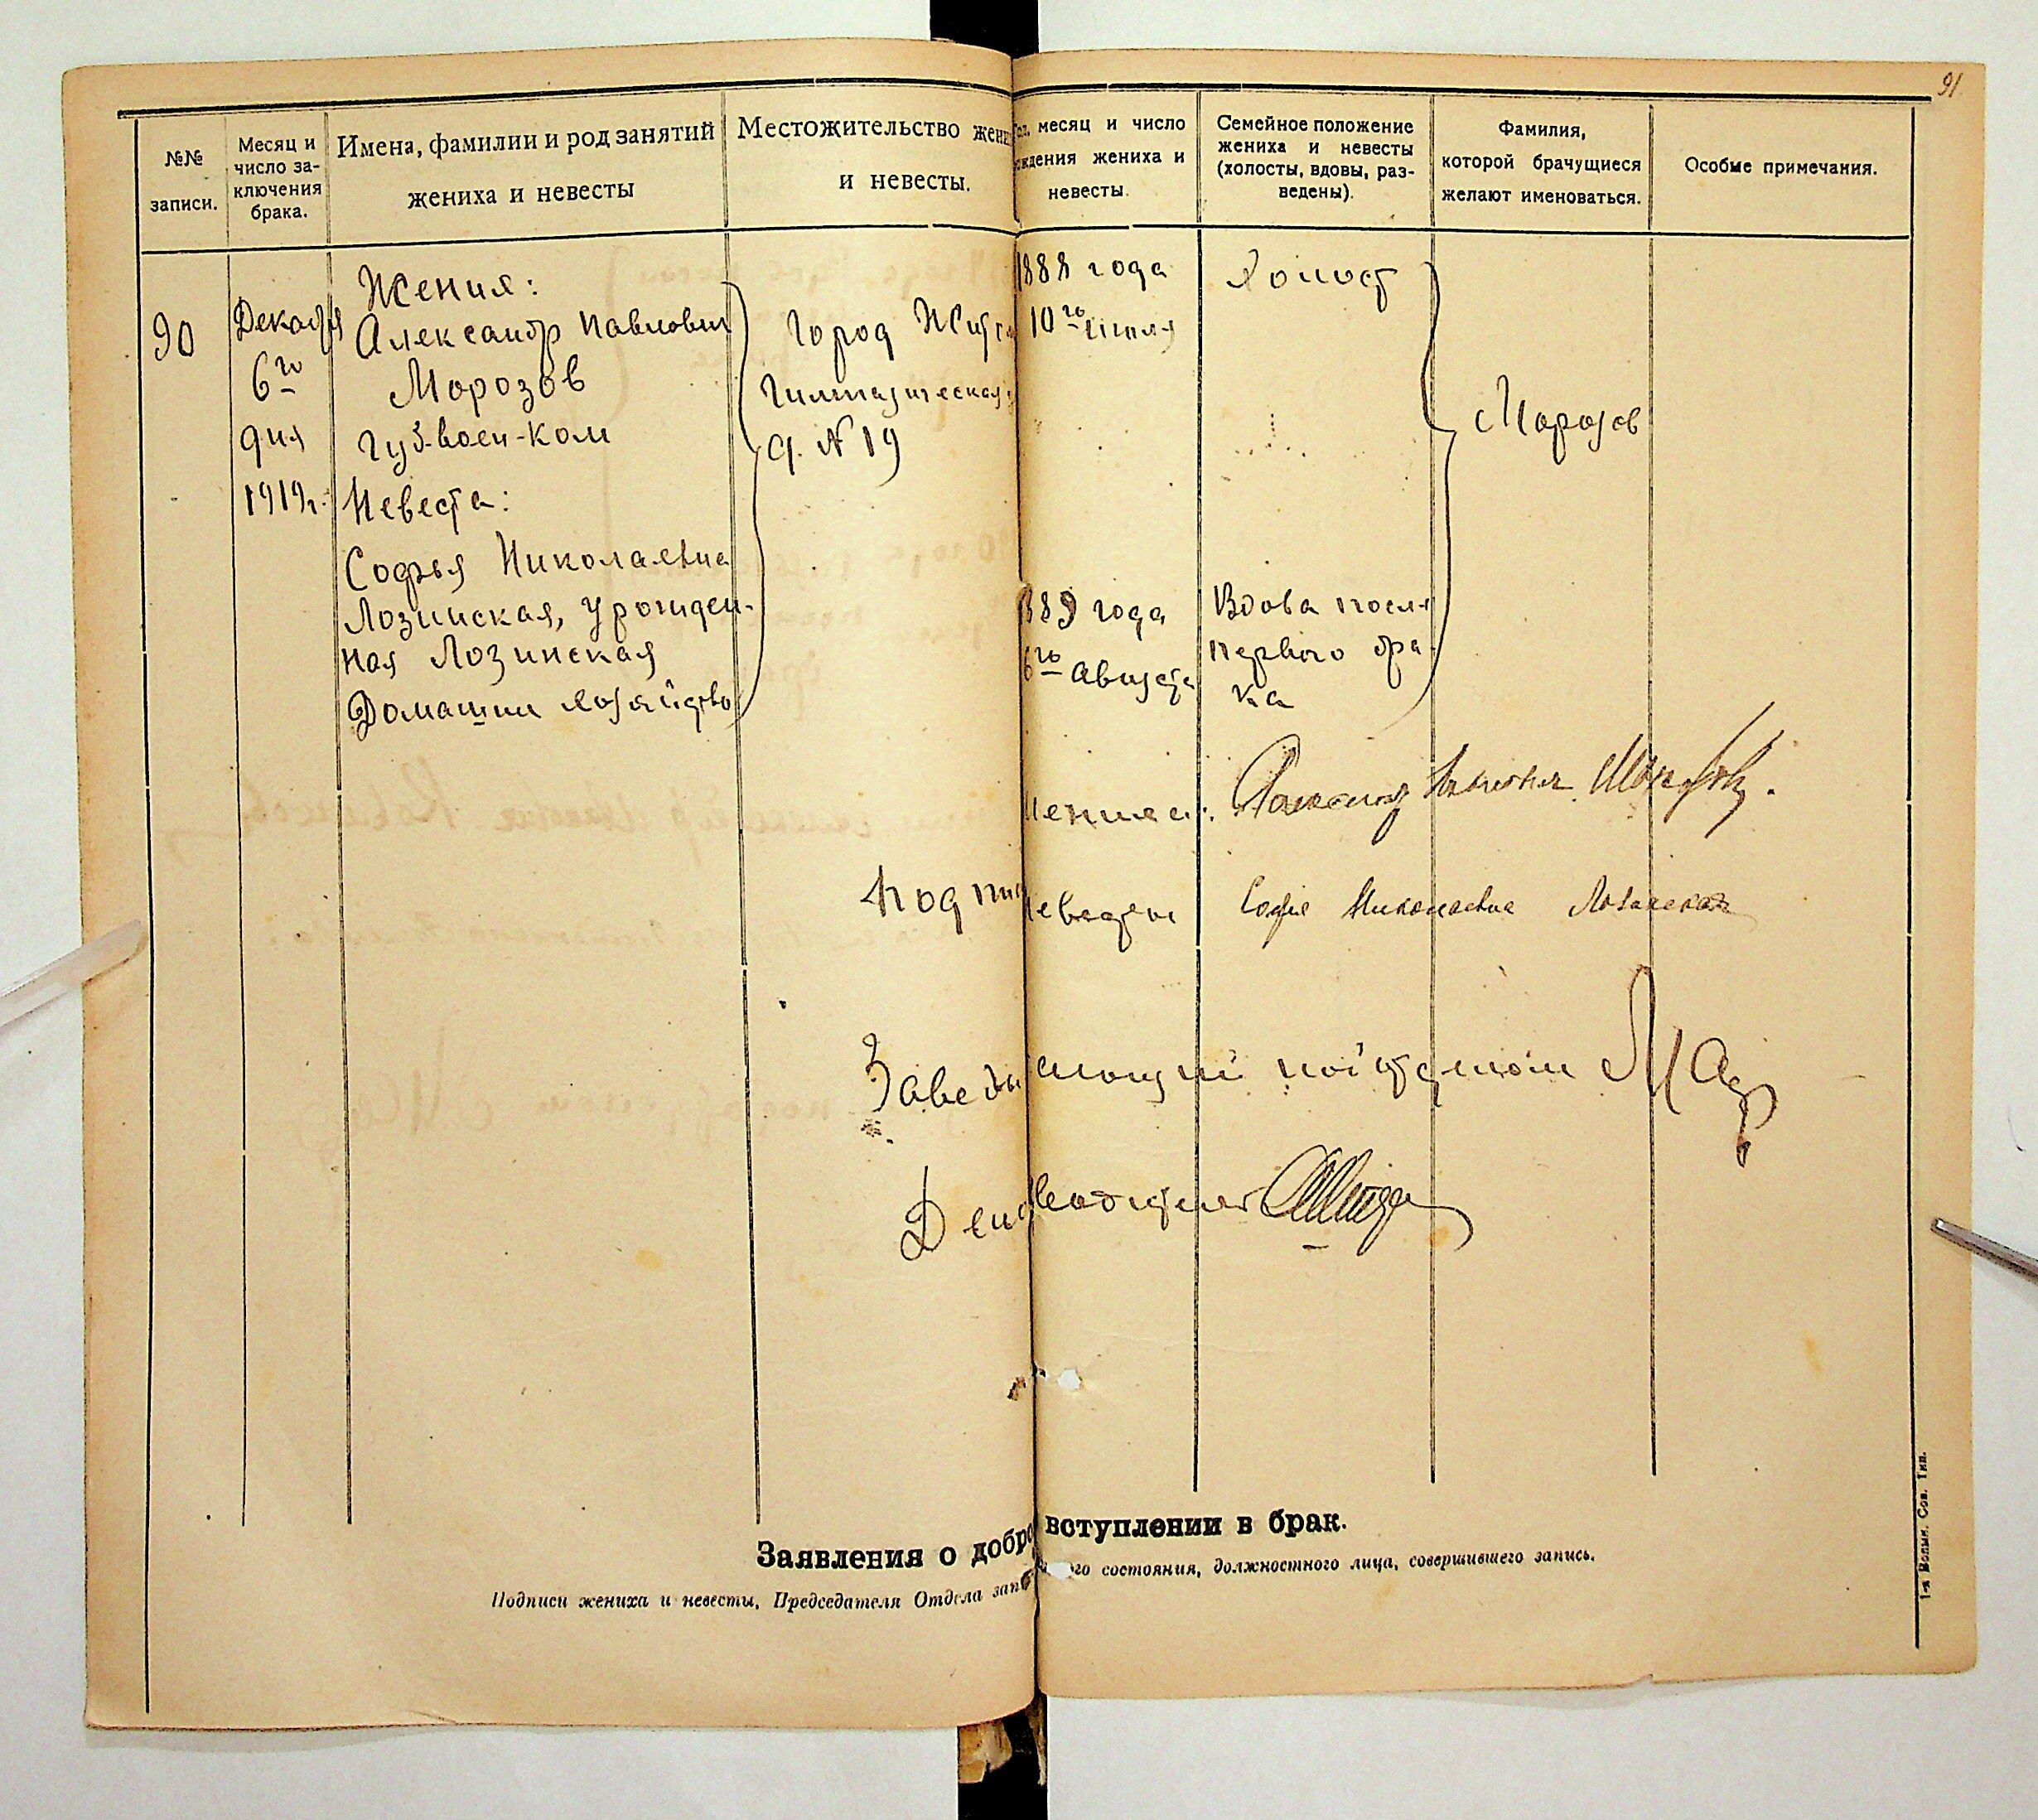 91
№№ записи.
Месяц и число заключения брака.
Имена, фамилии и род занятий
жениха и невесты
Местожительство жени
и невесты.
месяц и число
ждения жениха и
невесты.
Семейное положение
жениха и невесты
(холосты, вдовы, раз-
ведены).
Фамилия,
которой брачущиеся
желают именоваться.
Особые примечания.
90
Декабря
6го
дня
1919г.
Жених:
Александр Павлович
Морозов
Губ-воен-ком
Невеста:
Софья Николаевна
Лозинская, урожден-
ная Лозинская
Домашн хозяйство
Город Жито
Гимназическая
д. № 19
1888 года
10го Июля
Холост
Морозов
1889 года
6го Августа
Вдова после
первого бра-
ка
Жениха: Александр Павлович Морозов.
Подпис
Невесты Софія Николаевна Лозинская
Заведывающий подотделом
Делопроизводитель
Заявления о добро вступлении в брак.
Подписи жениха и невесты, Председателя Отдела запи го состояния, должностного лица, совершившего запись.
1-я Волын. Сов. Тип.